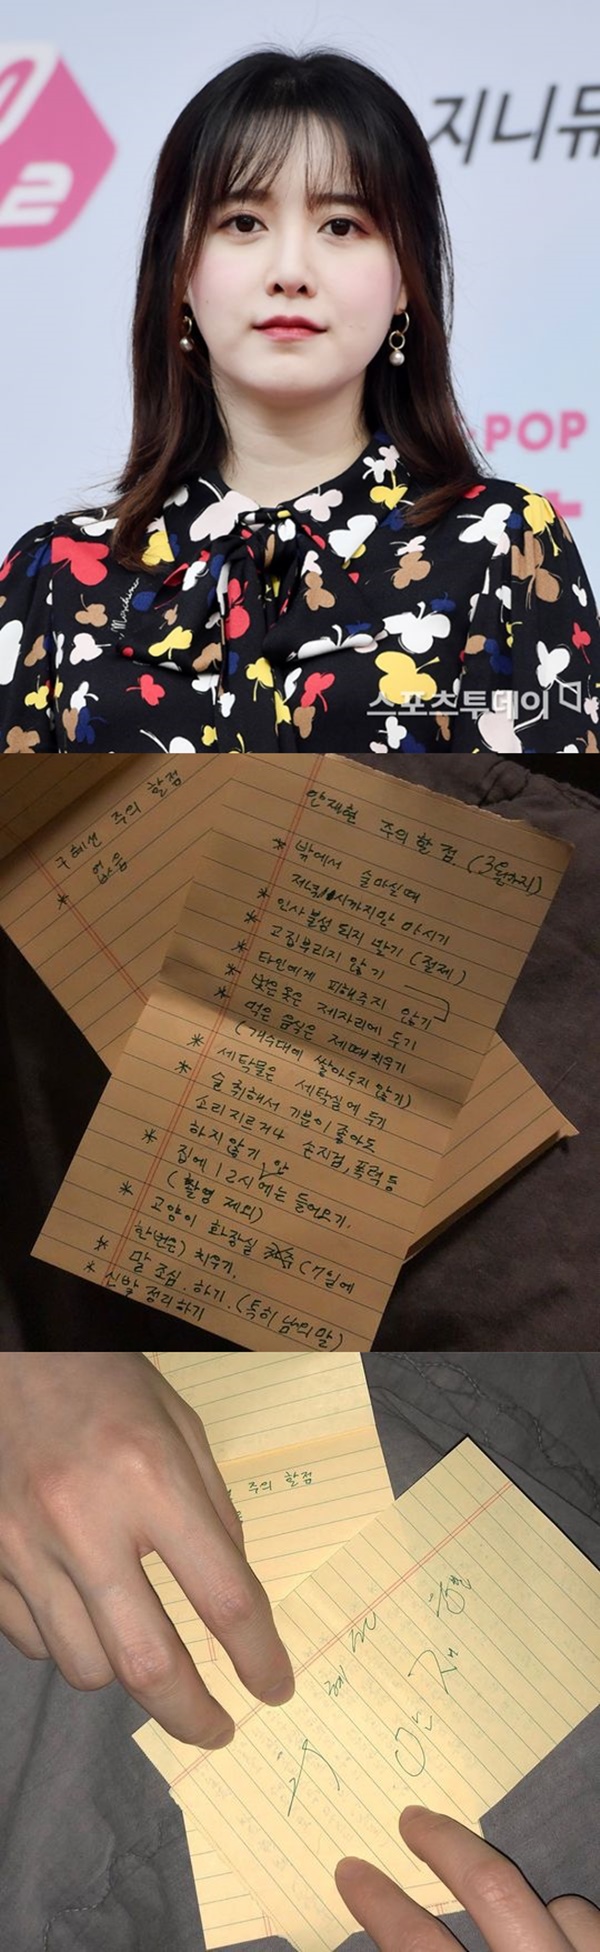 2
지니뮤
POP
Moschino
스포츠투데이
구혜선 주의 할점
* 없음
안재현 주의 할 점. (3월까지)
* 밖에서 술마실때
저녁 11시까지만 마시기
* 인사불성 되지 말기 (절제)
* 고집부리지 않기
* 타인에게 피해주지 않기
* 벗은 옷은 제자리에 두기
* 먹은 음식은 제때 치우기
(개수대에 쌓아두지 않기)
* 세탁물은 세탁실에 두기
* 술 취해서 기분이 좋아도
소리 지르거나 손지검, 폭력 등
하지 않기 안
* 집에 12시에는 들어오기.
(촬영 제외)
* 고양이 화장실 (7일에
한번은) 치우기.
* 말 조심. 하기. (특히 남의 말)
* 신발 정리하기
주의 할점
구 혜 선
안 재 현